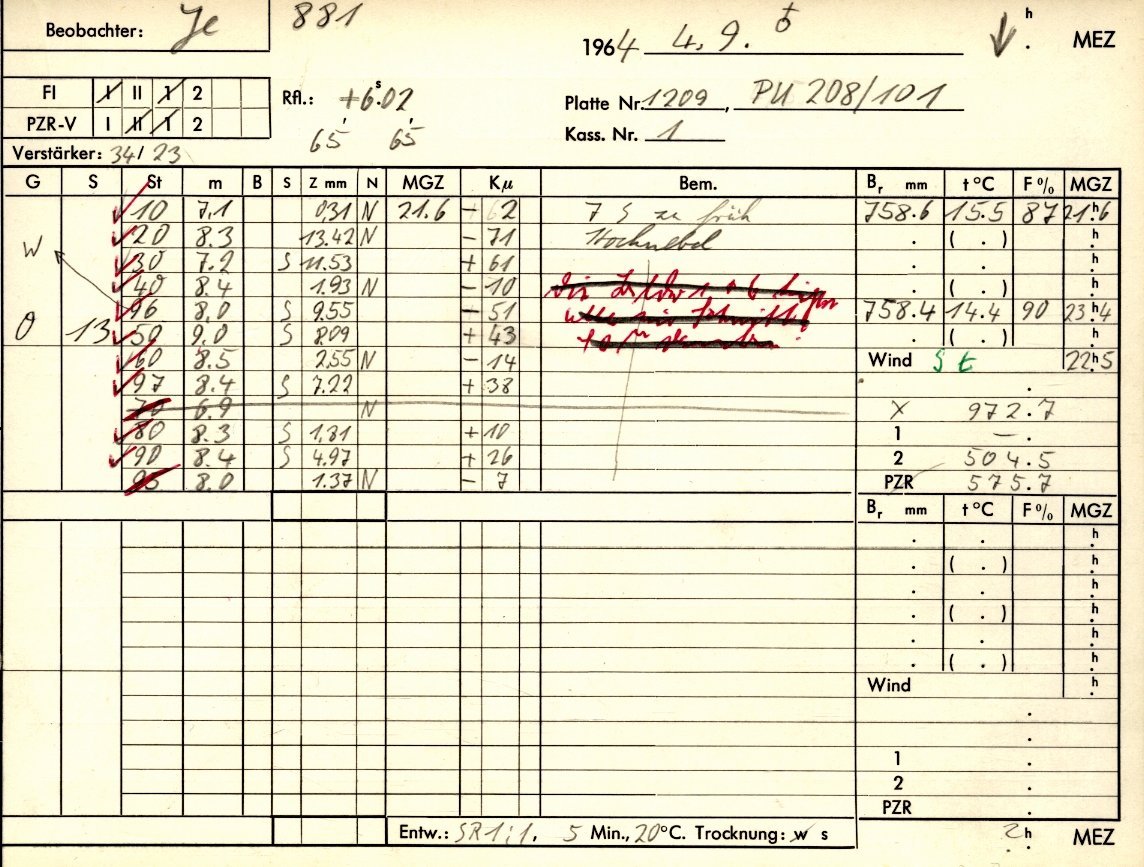 Beobachter: Je 881 1964 4. 9. ♄ h . MEZ
FI I II 1 2 Rfl.: +6.02 s Platte Nr. 1209, PU 208/101
PZR-V I II 1 2 65, 65, Kass. Nr. 1
Verstärker: 34/ 23
G S St m B S Z mm N MGZ Kμ Bem. Br mm t °C F % MGZ
10 7.1 0.31 N 21.6 - 62 7 S zu früh 758.6 15.5 87 21h.6
W 20 8.3 13.42 N - 71 Hochnebel . ( . ) h
30 7.2 S 11.53 + 61 . . h
40 8.4 1.93 N - 10 . ( . ) h
96 8.0 S 9.55 - 51 758.4 14.4 90 23h.4
O 13 50 9.0 S 8.09 + 43 . ( . ) h
60 8.5 2.55 N - 14 Wind S t 22h.5
97 8.4 S 7.22 + 38 .
70 6.9 N X 972.7
80 8.3 S 1.81 + 10 1 — .
90 8.4 S 4.97 + 26 2 504.5
95 8.0 1.37 N - 7 PZR 575.7
Br mm t °C F % MGZ
. . h
. ( . ) h
. . h
. ( . ) h
. . h
. ( . ) h
Wind h
.
.
1 .
2 .
PZR .
Entw.: SR 1:1, 5 Min., 20°C. Trocknung: w s 2h . MEZ